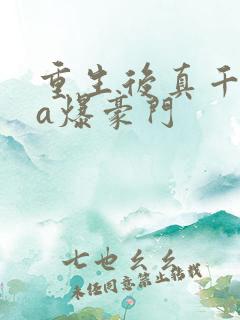 重生後真千
a爆豪門
七也幺幺
未經同意禁止轉載